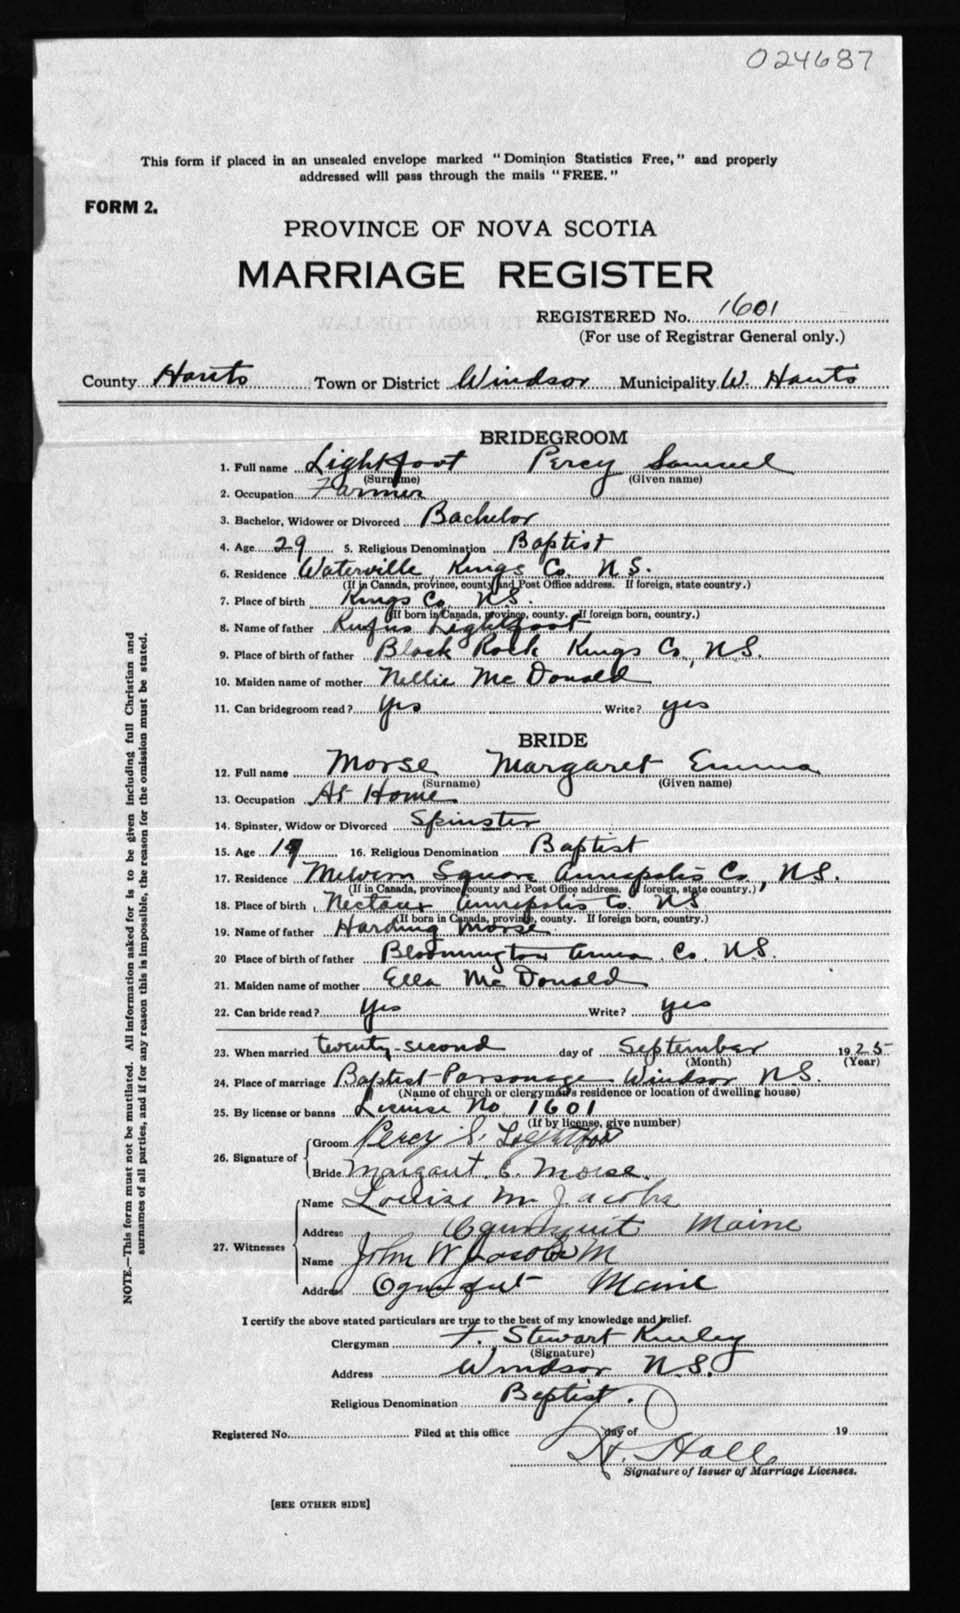 024687
This form if placed in an unsealed envelope marked "Dominion Statistics Free," and properly
addressed will pass through the mails "FREE."
FORM 2.
PROVINCE OF NOVA SCOTIA
MARRIAGE REGISTER
REGISTERED No. 1601
(For use of Registrar General only.)
County Hants Town or District Windsor Municipality W. Hants
BRIDEGROOM
1. Full name Lightfoot Percy Samuel
(Surname) (Given name)
2. Occupation Farmer
3. Bachelor, Widower or Divorced Bachelor
4. Age 29 5. Religious Denomination Baptist
6. Residence Waterville, Kings Co. N.S.
(If in Canada, province, county and Post Office address. If foreign, state country.)
7. Place of birth Kings Co. N.S.
(If born in Canada, province, county. If foreign born, country.)
8. Name of father Rufus Lightfoot
9. Place of birth of father Black Rock Kings Co., N.S.
10. Maiden name of mother Nellie McDonald
11. Can bridegroom read? Yes Write? yes
BRIDE
12. Full name Morse Margaret Emma
(Surname) (Given name)
13. Occupation At Home
14. Spinster, Widow or Divorced Spinster
15. Age 19 16. Religious Denomination Baptist
17. Residence Melvern Square Annapolis Co., N.S.
(If in Canada, province county and Post Office address. If foreign, state country.)
18. Place of birth Nictaux Annapolis Co. N.S
(If born in Canada, province, county. If foreign born, country.)
19. Name of father Harding Morse
20 Place of birth of father Bloomington Anna. Co. N.S.
21. Maiden name of mother Ella McDonald
22. Can bride read? Yes Write? yes
23. When married twenty-second day of September 1925
(Month) (Year)
24. Place of marriage Baptist Parsonage Windsor N.S.
(Name of church or clergyman's residence or location of dwelling house)
25. By license or banns License No. 1601
(If by license, give number)
26. Signature of
Groom Percy S. Lightfoot
Bride Margaret. E. Morse.
27. Witnesses
Name Louise M Jacobs
Address Ogunquit Maine
Name John W Jacobs
Address Ogunquit Maine
I certify the above stated particulars are true to the best of my knowledge and belief.
Clergyman F. Stewart Kinley
(Signature)
Address Windsor N.S.
Religious Denomination Baptist.
Registered No. Filed at this office day of 19
H. Hall
Signature of Issuer of Marriage Licenses.
[SEE OTHER SIDE]
NOTE.—This form must not be mutilated. All information asked for is to be given including full Christian and
surnames of all parties, and if for any reason this is impossible, the reason for the omission must be stated.